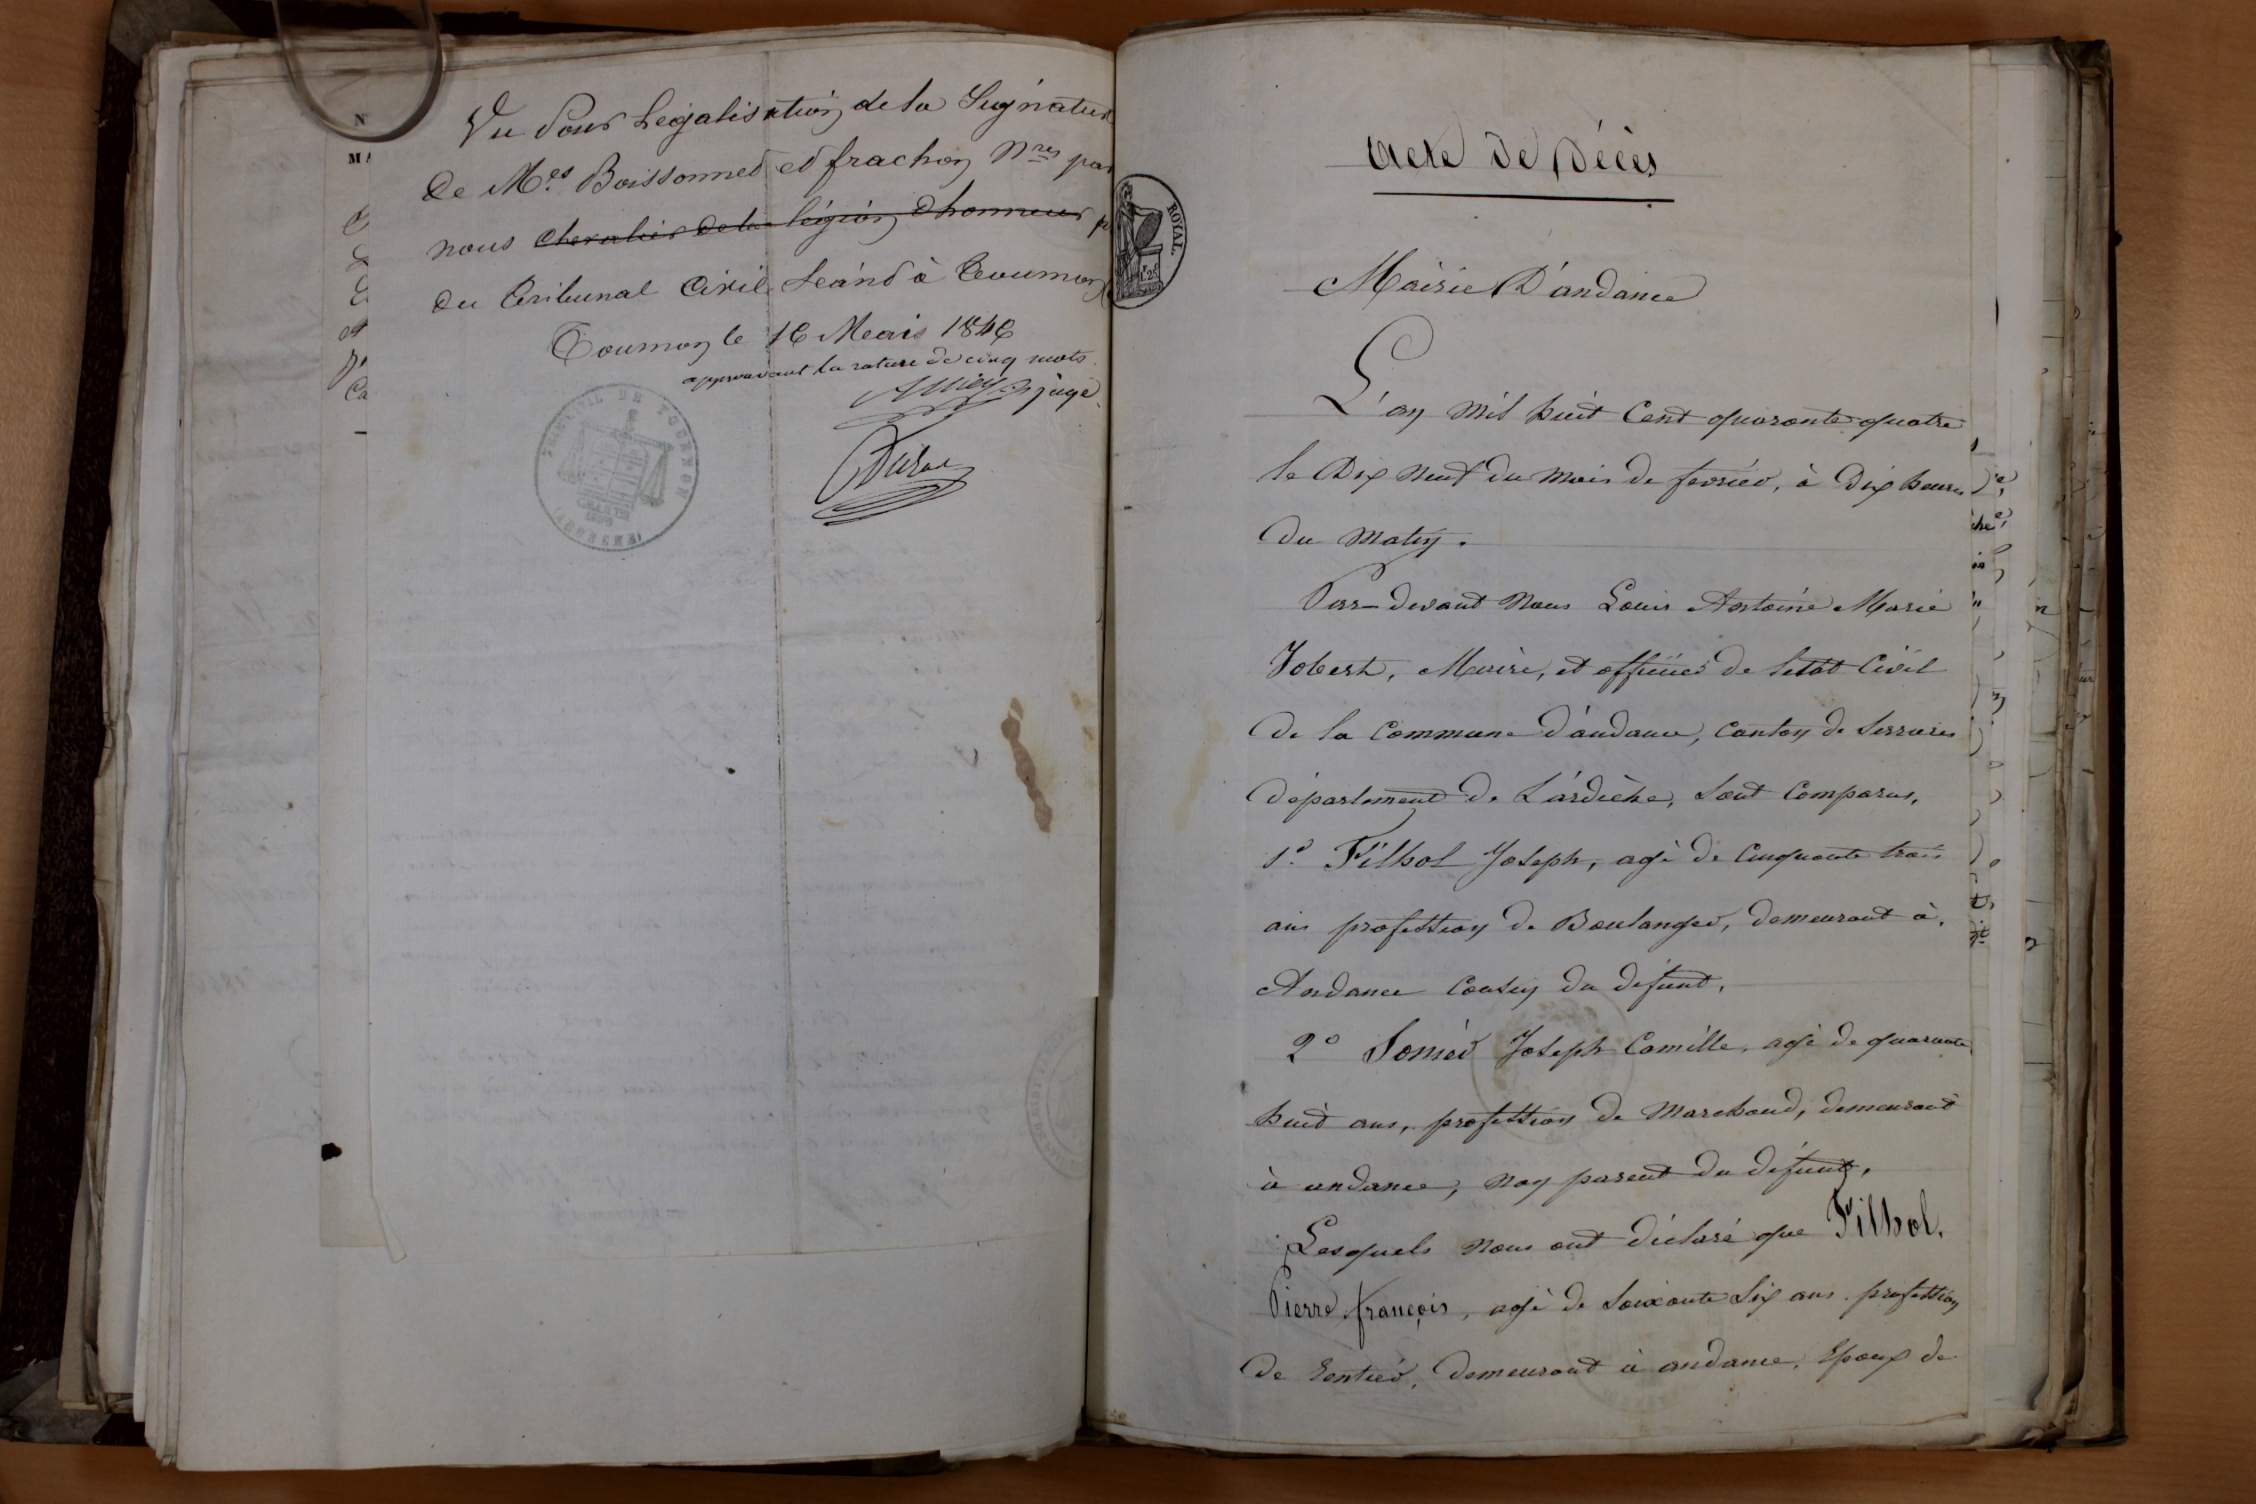 Vu Pour Légalisation de la Signature
De Mes Boissonnet et frachon Nres par
nous chevalier de la légion d'honneur
du Tribunal Civil Séant à Tournon
Tournon le 16 Mars 1846
approuvant la rature de cinq mots
juge
TRIBUNAL CIVIL DE TOURNON
CHARTE
1830
(ARDECHE)
ROYAL
Acte de Décès
Mairie D'andance
L'an mil huit Cent quarante quatre
le Dix neuf du mois de fevrier, à dix heures
du matin.
Par-devant Nous Louis Antoine Marie
Jobert, Maire, et officier de letat Civil
de la Commune d'andance, Canton de Serrieres
département de L'ardèche, sont Comparus,
1o Filhol Joseph, agé de Cinquante trois
ans profession de Boulanger, demeurant à
Andance Cousin du défunt,
2o Sonier Joseph Camille, agé de quarante
huit ans, profession de Marchand, demeurant
à andance, non parent du défunt,
Lesquels nous ont déclaré que Filhol
Pierre françois, agé de soixante six ans profession
de rentier, demeurant à andance, Epoux de